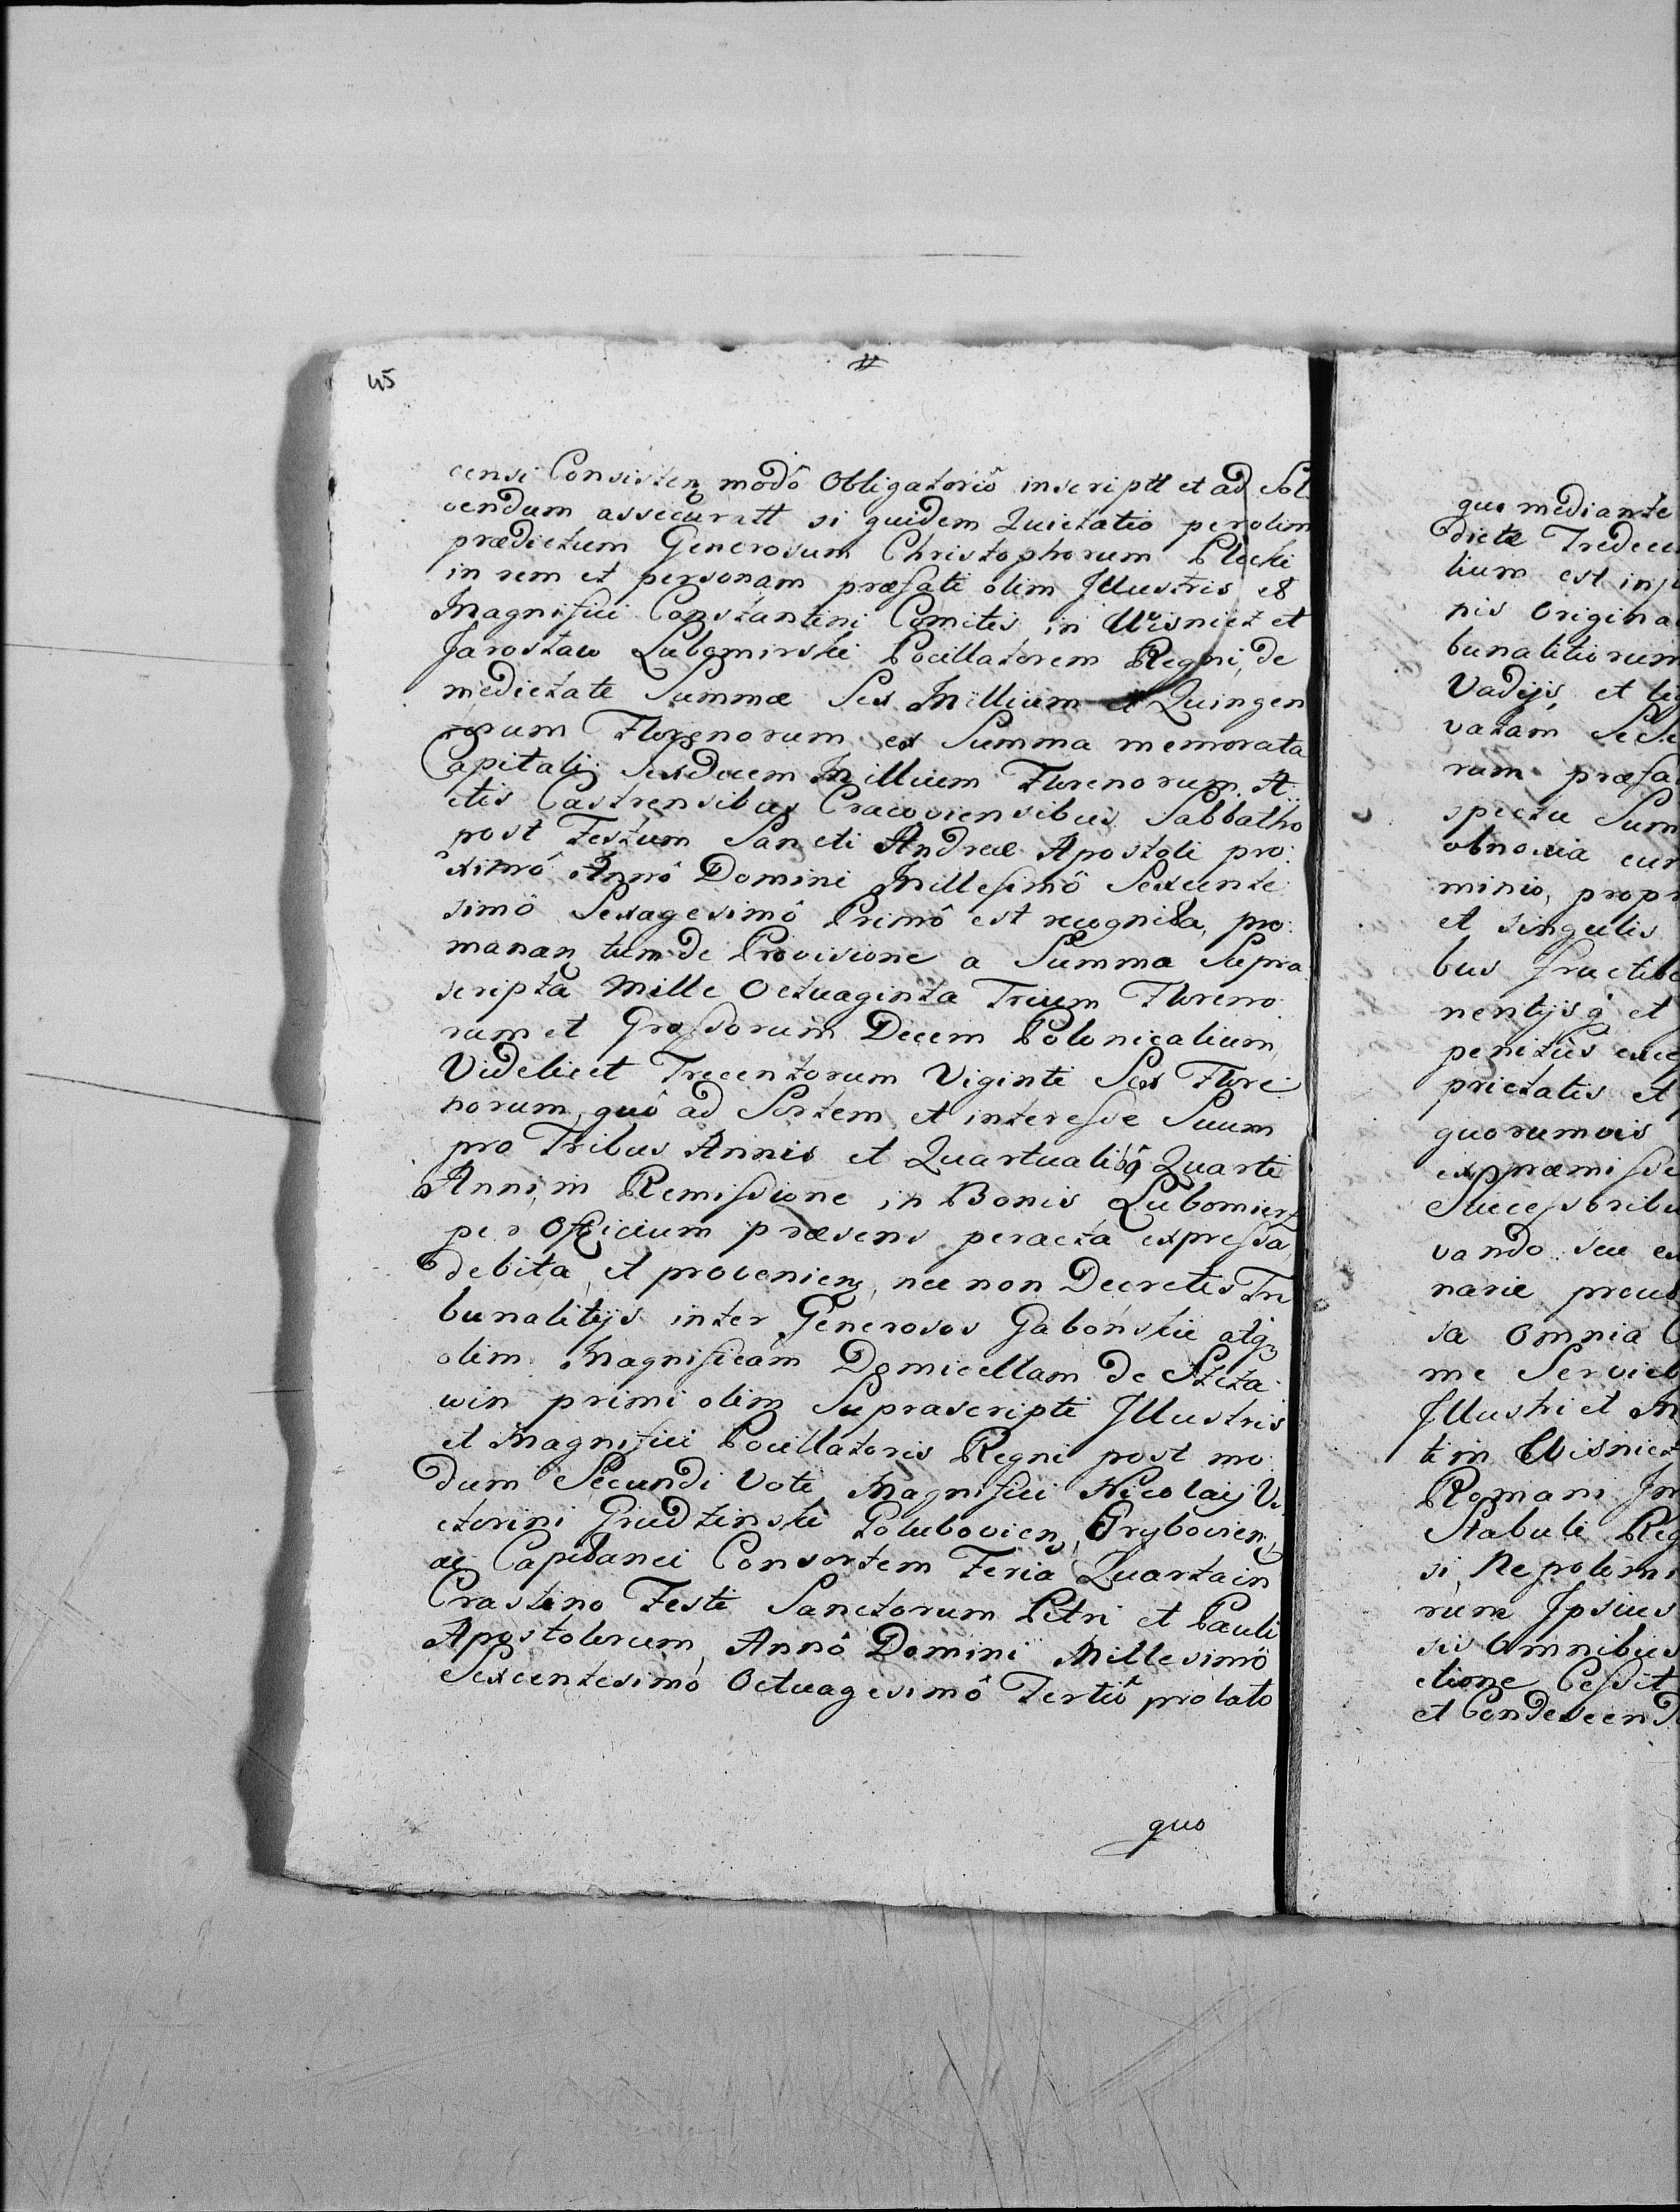 45
censi Consisten modô Obligatoriô inscriptt et ad Sol
vendum assecuratt si quidem Quietatio per olim
prædictum Generosum Christophorum
in rem et personam præfati olim Illustris et
Magnifici Constantini Comitis in Wisnicz et
Jarosław Lubomirski Pocillatorem Regni, de
medietate Summæ Sex Millium et Quingen
torum Florenorum ex Summa memorata
Capitali Sexdecem Millium Florenorum A
ctis Castrensibus Cracoviensibus Sabbatho
post Festum Sancti Andreæ Apostoli pro:
ximô Annô Domini Millesimô Sexcente
simô Sexagesimô Primô est recognita, pro:
manan tum de Provisione a Summa Supra
scripta Mille Octuaginta Trium Floreno
rum et Grossorum Decem Polonicalium
Videlicet Trecentorum Viginti Sex Flore:
norum, quô ad Sortem et interesse Suum
pro Tribus Annis et Quartualibq Quarti
Anni, in Remissione in Bonis Lubomierz
per Officium præsens peracta expressa
debita, et provenien, nec non Decretis Tri
bunalitijs inter Generosos Gabonskie atq
olim Magnificam Domicellam de
win primi olim Suprascripti Illustris
et Magnifici Pocillatoris Regni post mo
dum Secundi Voti Magnifici Nicolaij Vi
ctorini Grudzinski Golubovien, Grybovien,
ac Capitanei Consortem Feria Quarta in
Crastino Festi Sanctorum Petri et Pauli
Apostolorum, Annô Domini Millesimô
Sexcentesimô Octuagesimô Tertiô prolato
quo
quo mediante
dicte
lium est
nis Origina
bunalitiorum
Vadijs, et
vatam
rum præfa
spectu Sum
obnoxia cum
minio, propr
et singulis
bus fructib
nentijsq et
penitus exce
prietatis et
quorumvis
ex præmisse
Successoribu
vando seu
narie
sa Omnia
me Servien
Illustri et M
t in Wisnicz
Romani
Stabuli Reg
si, Nepolomi
rum Ipsius
sis Omnibus
ctione Cessit
et Condescend